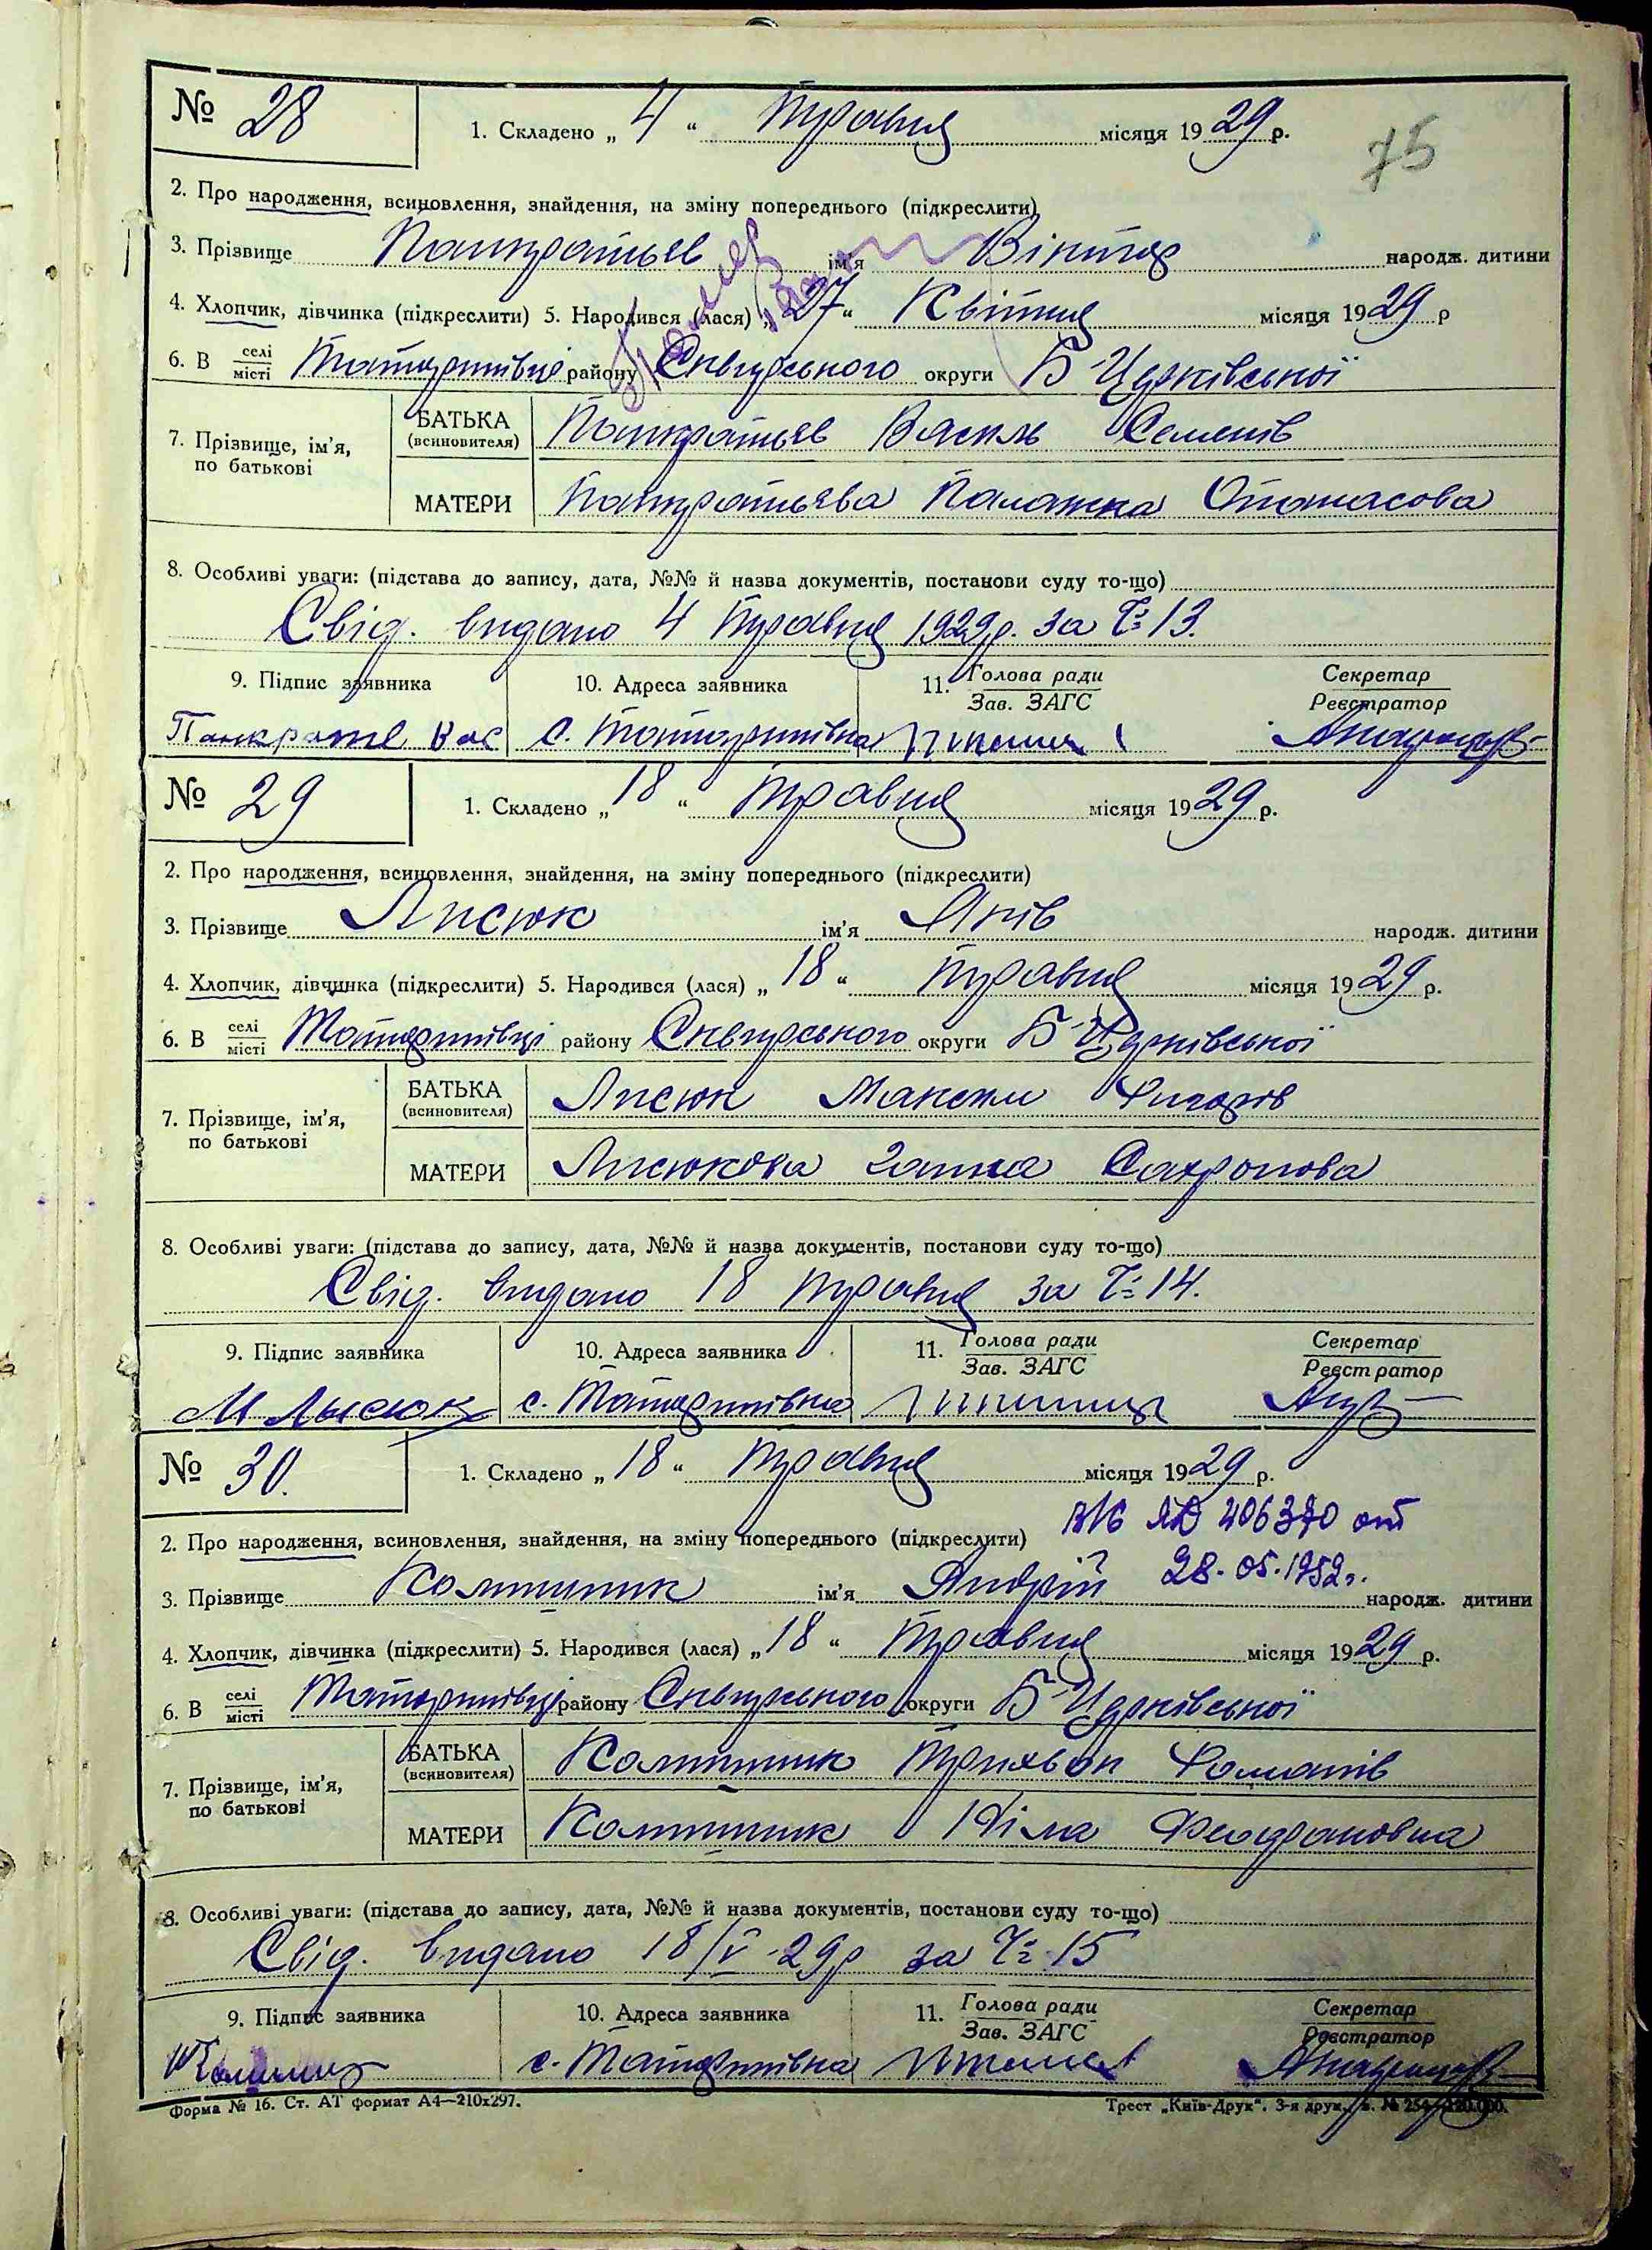 № 28
1. Складено „ 4 “ Травня місяця 1929 р.
75
2. Про народження, всиновлення, знайдення, на зміну попереднього (підкреслити)
3. Прізвище Панкратьєв ім’я Віктор народж. дитини
4. Хлопчик, дівчинка (підкреслити) 5. Народився (лася) „ 27 “ Квітня місяця 1929 р
6. В селі місті Татаринівці району Сквирського округи Б-Церківської
7. Прізвище, ім’я, по батькові
БАТЬКА (всиновителя) Панкратьєв Василь Семенів
МАТЕРИ Панкратьєва Палажка Опанасова
8. Особливі уваги: (підстава до запису, дата, №№ й назва документів, постанови суду то-що)
Свід. видано 4 Травня 1929р. за Ч: 13.
9. Підпис заявника 10. Адреса заявника 11. Голова ради Зав. ЗАГС Секретар Реєстратор
с. Татаринівка
№ 29
1. Складено „ 18 “ травня місяця 1929 р.
2. Про народження, всиновлення, знайдення, на зміну попереднього (підкреслити)
3. Прізвище Лисюк ім’я Яків народж. дитини
4. Хлопчик, дівчинка (підкреслити) 5. Народився (лася) „ 18 “ травня місяця 1929 р.
6. В селі місті Татаринівці району Сквирського округи Б-Церківської
7. Прізвище, ім’я, по батькові
БАТЬКА (всиновителя) Лисюк Максим
МАТЕРИ Лисюкова Ганна Сахронова
8. Особливі уваги: (підстава до запису, дата, №№ й назва документів, постанови суду то-що)
Свід. видано 18 травня за Ч: 14.
9. Підпис заявника 10. Адреса заявника 11. Голова ради Зав. ЗАГС Секретар Реєстратор
М Лысюк с. Татаринівка
№ 30.
1. Складено „ 18 “ травня місяця 1929 р.
406370 от
2. Про народження, всиновлення, знайдення, на зміну попереднього (підкреслити)
28.05.1952г.
3. Прізвище ім’я Андрій народж. дитини
4. Хлопчик, дівчинка (підкреслити) 5. Народився (лася) „ 18 “ Травня місяця 1929 р.
6. В селі місті Татаринівці району Сквирського округи Б-Церківської
7. Прізвище, ім’я, по батькові
БАТЬКА (всиновителя)
МАТЕРИ
8. Особливі уваги: (підстава до запису, дата, №№ й назва документів, постанови суду то-що)
Свід. видано 18/V-29р за Ч: 15
9. Підпис заявника 10. Адреса заявника 11. Голова ради Зав. ЗАГС Секретар Реєстратор
с. Татаринівка
Форма № 16. Ст. АТ формат А4—210х297.
Трест „Київ-Друк“. 3-я друк.